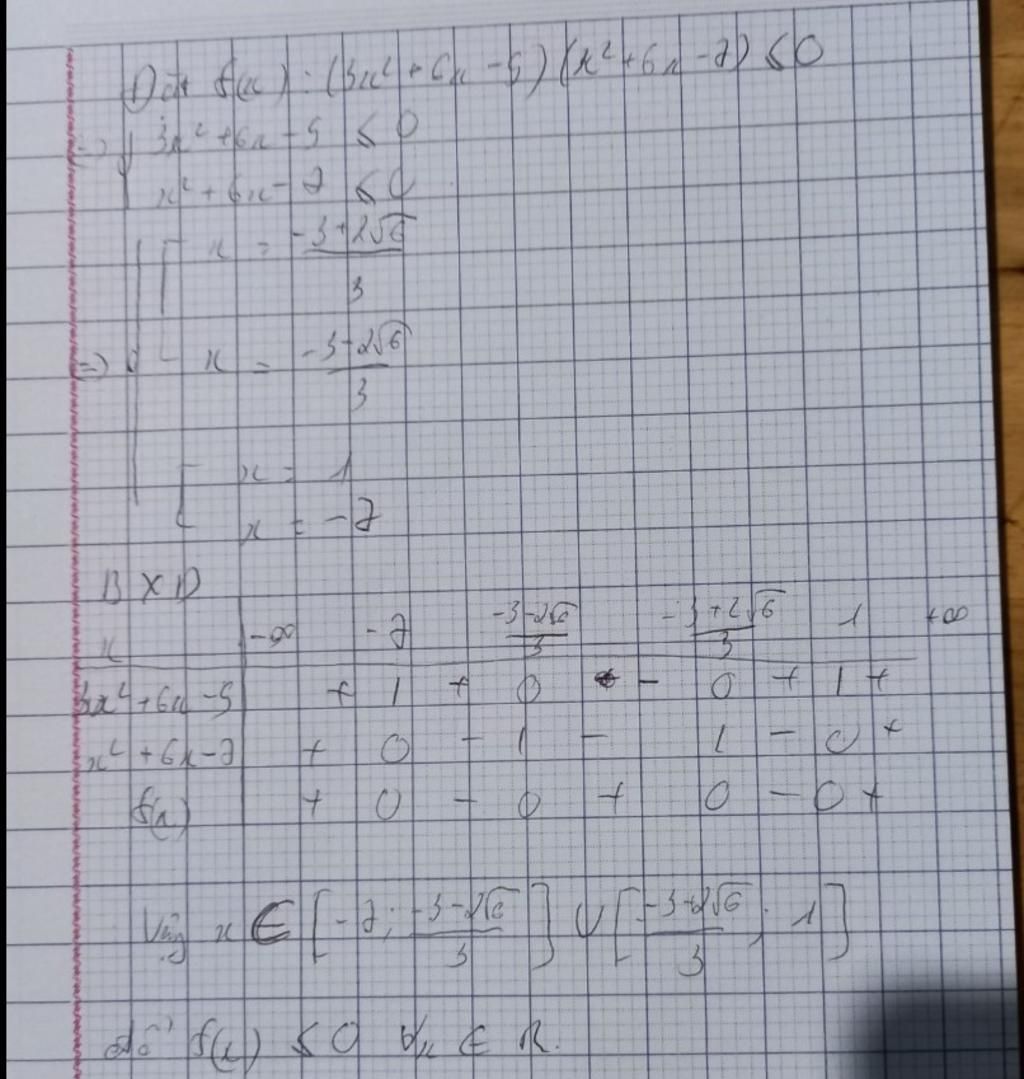 Đặt f(x) : (3x² + 6x - 5)(x² + 6x - 7) ≤ 0
=> { 3x² + 6x - 5 ≤ 0
x² + 6x - 7 ≤ 0
x = (-3+2√6)/3
=> x = (-3-2√6)/3
x = 1
x = -7
BXD
x -∞ -7 (-3-2√6)/3 (-3+2√6)/3 1 +∞
3x² + 6x - 5 + | + 0 - 0 + | +
x² + 6x - 7 + 0 - | - | - 0 +
f(x) + 0 - 0 + 0 - 0 +
Vậy x ∈ [-7; (-3-2√6)/3] ∪ [(-3+2√6)/3; 1]
để f(x) ≤ 0 ∀x ∈ R.